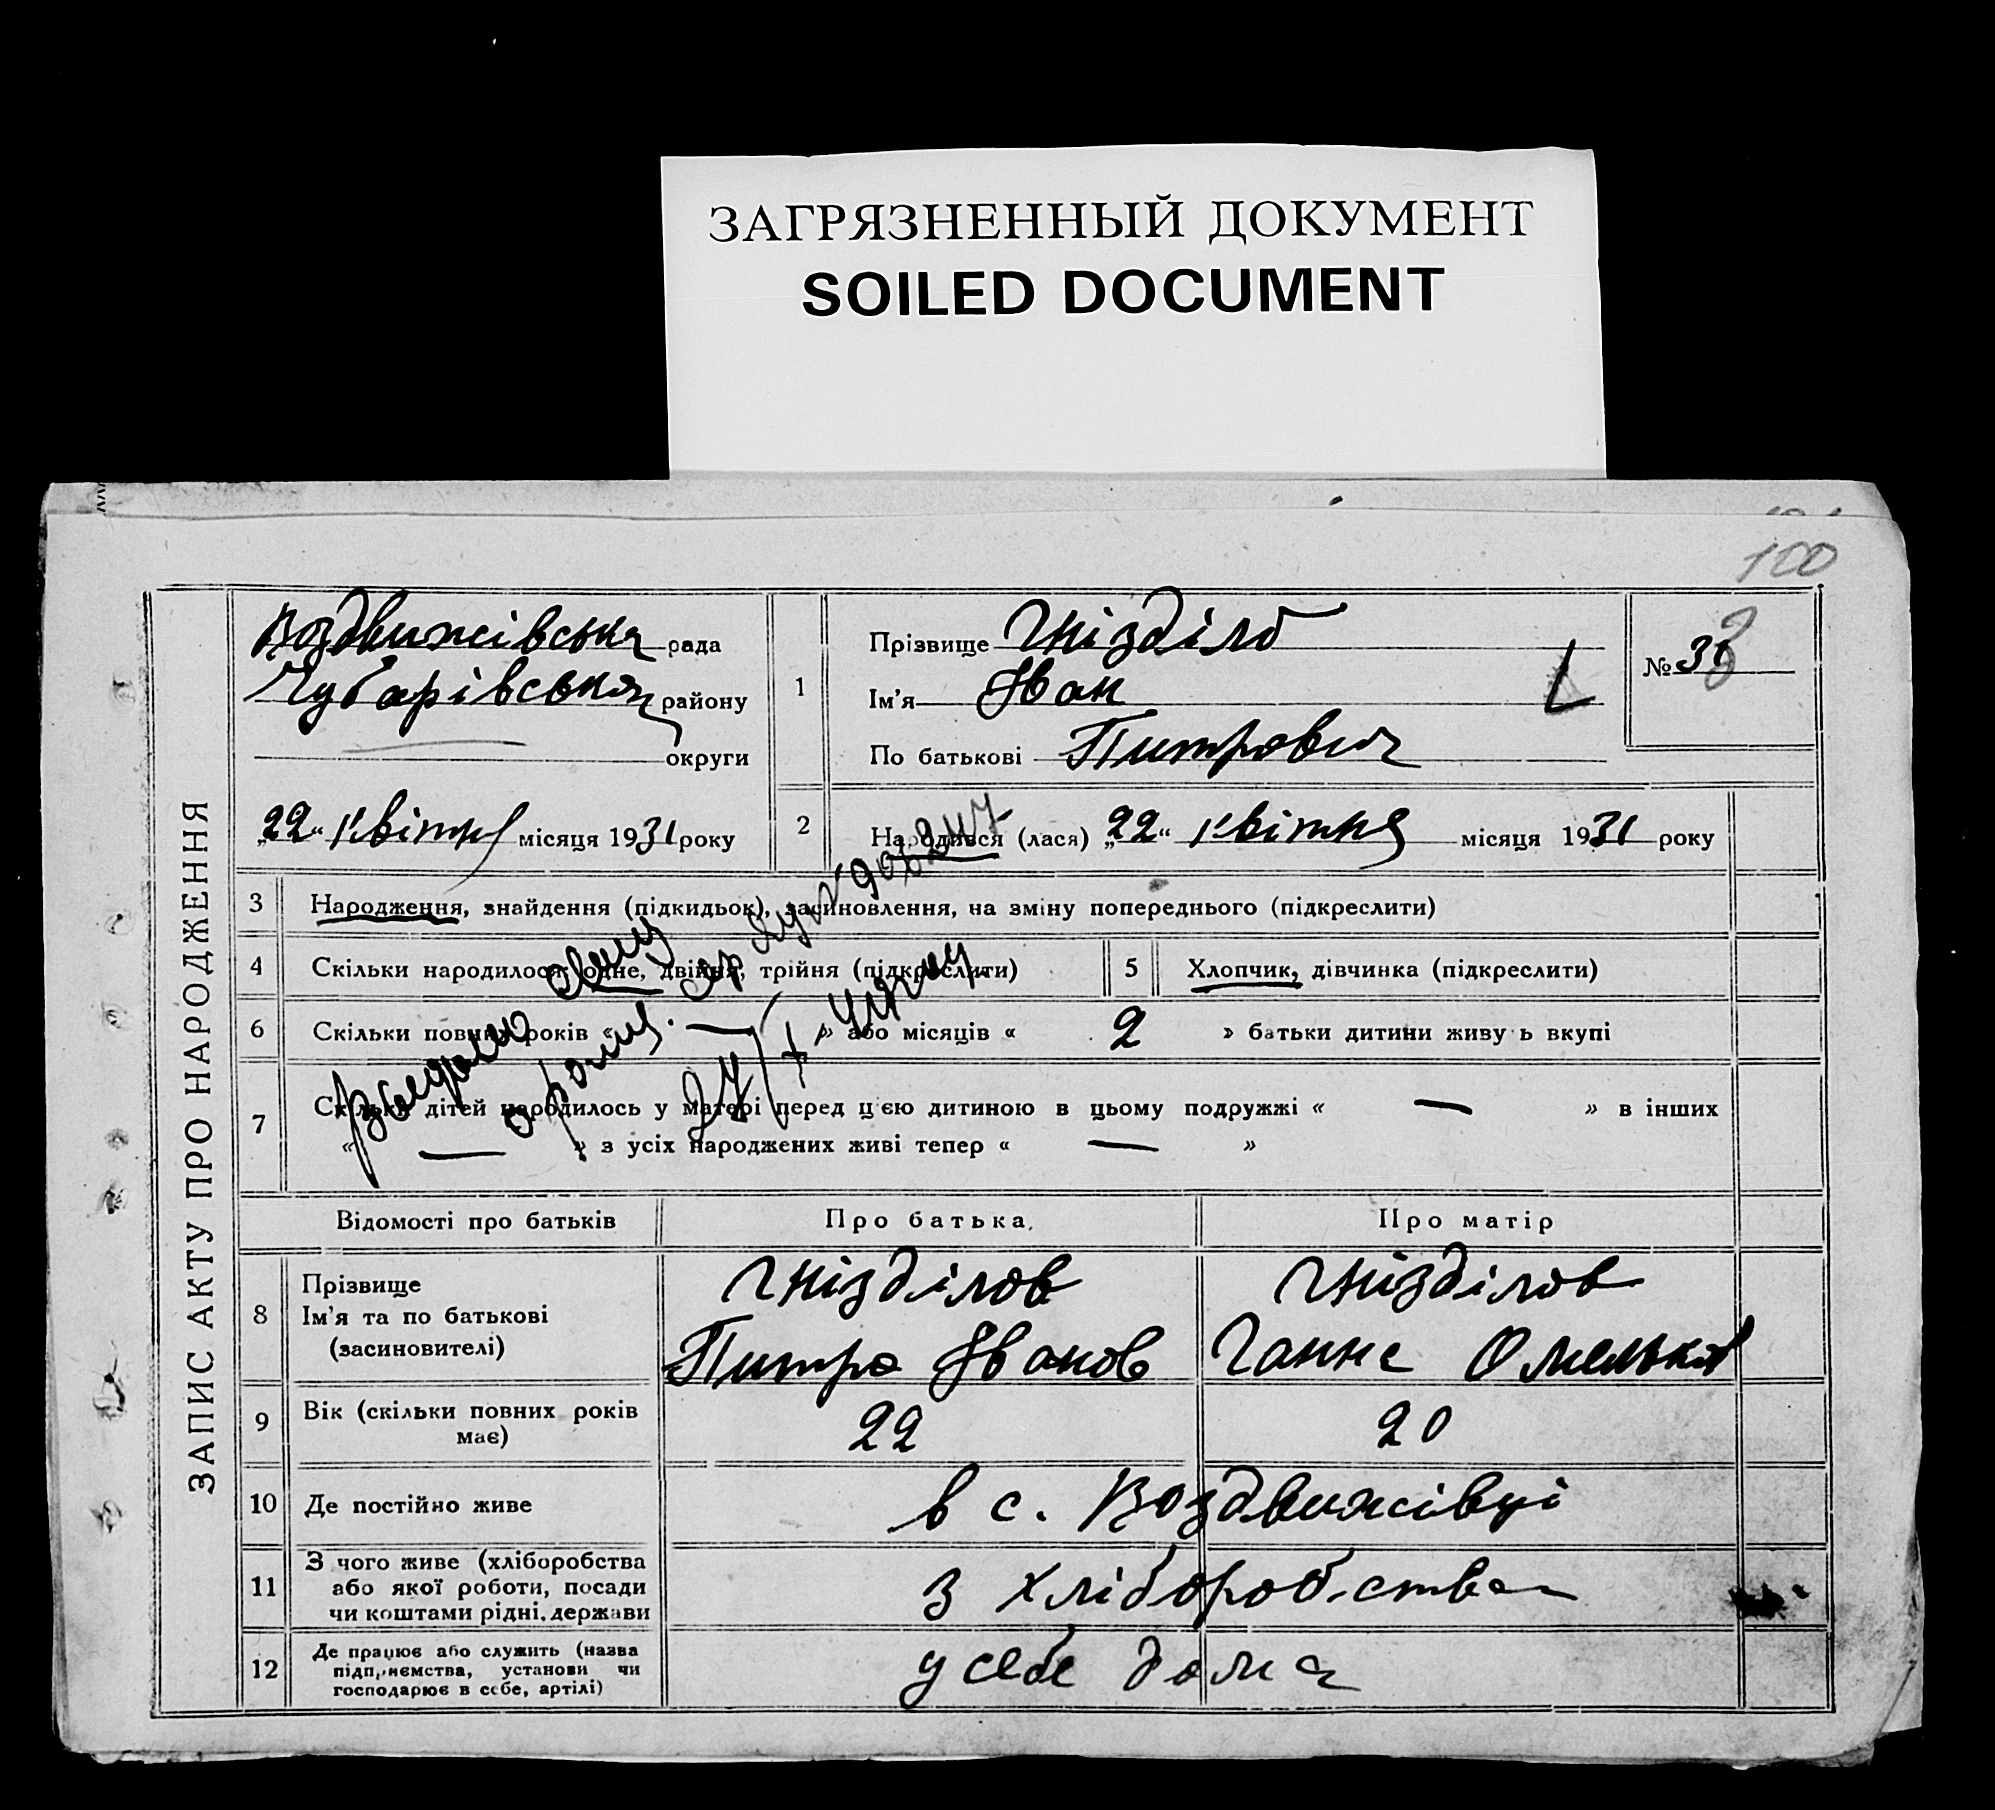 ЗАГРЯЗНЕННЫЙ ДОКУМЕНТ
SOILED DOCUMENT
100
ЗАПИС АКТУ ПРО НАРОДЖЕННЯ
Воздвижівська рада
Чубарівська району
округи
„22“ квітня місяця 1931 року
1
Прізвище Гнізділо
Ім'я Іван
По батькові Питрович
№
2
Народився (лася) „22“ квітня місяця 1931 року
3 Народження, знайдення (підкидьок), засиновлення, на зміну попереднього (підкреслити)
4 Скільки народилося: одне, двійня, трійня (підкреслити)
5 Хлопчик, дівчинка (підкреслити)
6 Скільки повних років « — » або місяців « 2 » батьки дитини живуть вкупі
7 Скільки дітей народилось у матері перед цією дитиною в цьому подружжі « — » в інших
« — » з усіх народжених живі тепер « — »
Відомості про батьків Про батька Про матір
8 Прізвище
Ім'я та по батькові
(засиновителі)
Гнізділов Гнізділов
Питро Іванов Ганна Омельков
9 Вік (скільки повних років
має)
22 20
10 Де постійно живе в с. Воздвижівці
11 З чого живе (хліборобства
або якої роботи, посади
чи коштами рідні, держави
з хліборобства
12 Де працює або служить (назва
підприємства, установи чи
господарює в себе, артілі)
у себе дома